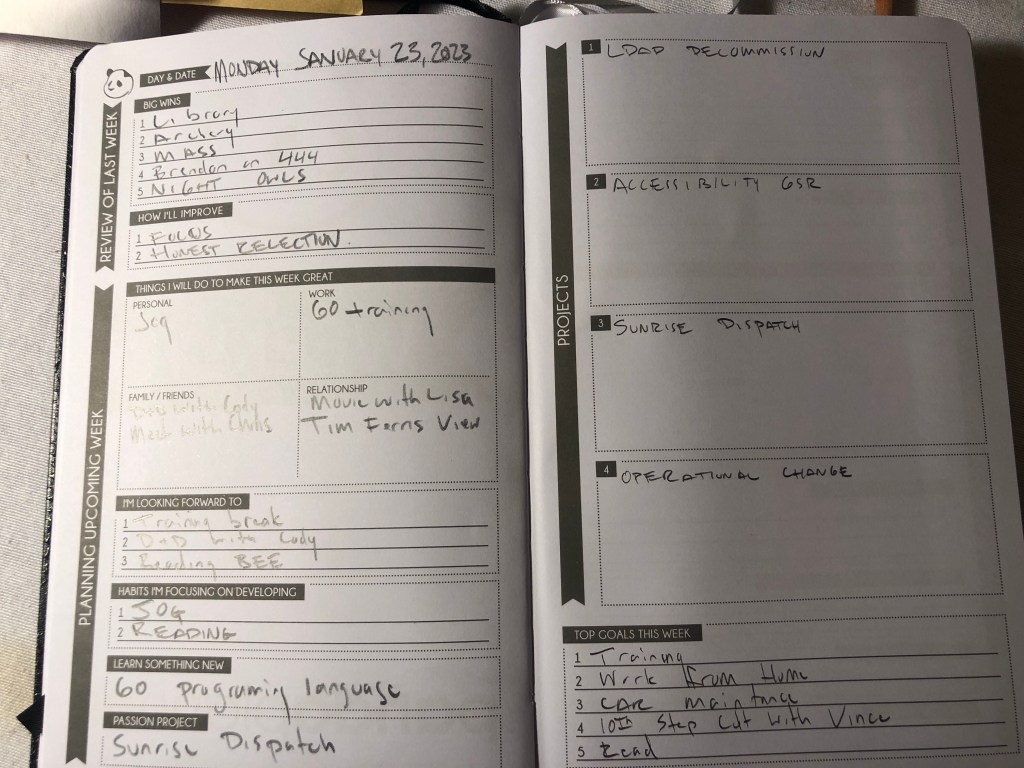 DAY & DATE MONDAY JANUARY 23, 2023
REVIEW OF LAST WEEK
BIG WINS
1 Library
2 Archery
3 MASS
4 Brendon on 444
5 NIGHT OWLS
HOW I'LL IMPROVE
1 FOCUS
2 HONEST RELECTION.
PLANNING UPCOMING WEEK
THINGS I WILL DO TO MAKE THIS WEEK GREAT
PERSONAL
Jog
WORK
GO training
FAMILY / FRIENDS
with Cody
with Chris
RELATIONSHIP
Movie with Lisa
Tim Ferris View
I'M LOOKING FORWARD TO
1 Training break
2 D+D with Cody
3 Reading BEE
HABITS I'M FOCUSING ON DEVELOPING
1 JOG
2 READING
LEARN SOMETHING NEW
GO programing language
PASSION PROJECT
Sunrise Dispatch
PROJECTS
1 LDAP DECOMMISSION
2 ACCESSIBILITY GSR
3 SUNRISE DISPATCH
4 OPERATIONAL CHANGE
TOP GOALS THIS WEEK
1 Training
2 Work From Home
3 CAR maintance
4 10th Step with Vince
5 Read